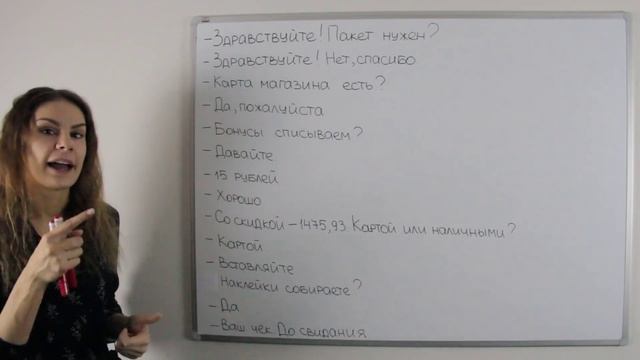 - Здравствуйте! Пакет нужен?
- Здравствуйте! Нет, спасибо
- Карта магазина есть?
- Да, пожалуйста
- Бонусы списываем?
- Давайте
- 15 рублей
- Хорошо
- Со скидкой – 1475,93. Картой или наличными?
- Картой
- Вставляйте
Наклейки собираете?
- Да
- Ваш чек. До свидания